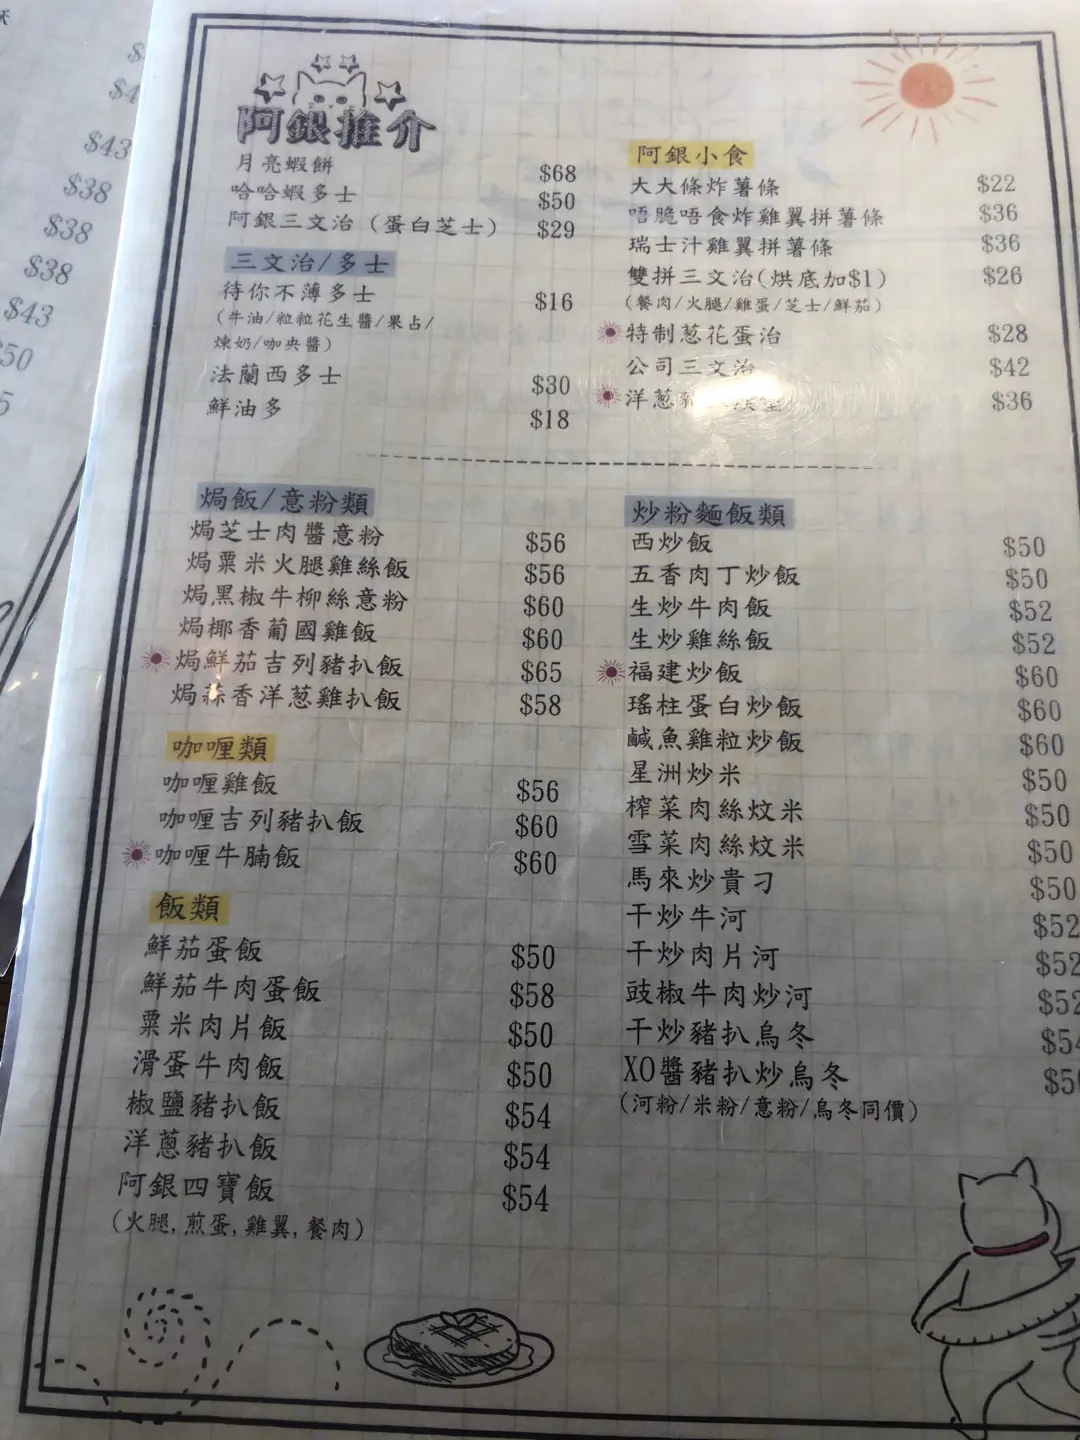 $43
$38
$38
$38
$43
阿銀推介
月亮蝦餅 $68
哈哈蝦多士 $50
阿銀三文治（蛋白芝士） $29
三文治/多士
待你不薄多士 $16
（牛油/粒粒花生醬/果占/
煉奶/咖央醬）
法蘭西多士 $30
鮮油多 $18
阿銀小食
大大條炸薯條 $22
唔脆唔食炸雞翼拼薯條 $36
瑞士汁雞翼拼薯條 $36
雙拼三文治(烘底加$1) $26
（餐肉/火腿/雞蛋/芝士/鮮茄）
特制葱花蛋治 $28
公司三文治 $42
洋葱 $36
焗飯/意粉類
焗芝士肉醬意粉 $56
焗粟米火腿雞絲飯 $56
焗黑椒牛柳絲意粉 $60
焗椰香葡國雞飯 $60
焗鮮茄吉列豬扒飯 $65
焗蒜香洋葱雞扒飯 $58
咖喱類
咖喱雞飯 $56
咖喱吉列豬扒飯 $60
咖喱牛腩飯 $60
飯類
鮮茄蛋飯 $50
鮮茄牛肉蛋飯 $58
粟米肉片飯 $50
滑蛋牛肉飯 $50
椒鹽豬扒飯 $54
洋蔥豬扒飯 $54
阿銀四寶飯 $54
（火腿,煎蛋,雞翼,餐肉）
炒粉麵飯類
西炒飯 $50
五香肉丁炒飯 $50
生炒牛肉飯 $52
生炒雞絲飯 $52
福建炒飯 $60
瑤柱蛋白炒飯 $60
鹹魚雞粒炒飯 $60
星洲炒米 $50
榨菜肉絲炆米 $50
雪菜肉絲炆米 $50
馬來炒貴刁 $50
干炒牛河 $52
干炒肉片河 $52
豉椒牛肉炒河 $52
干炒豬扒烏冬 $54
XO醬豬扒炒烏冬
（河粉/米粉/意粉/烏冬同價）